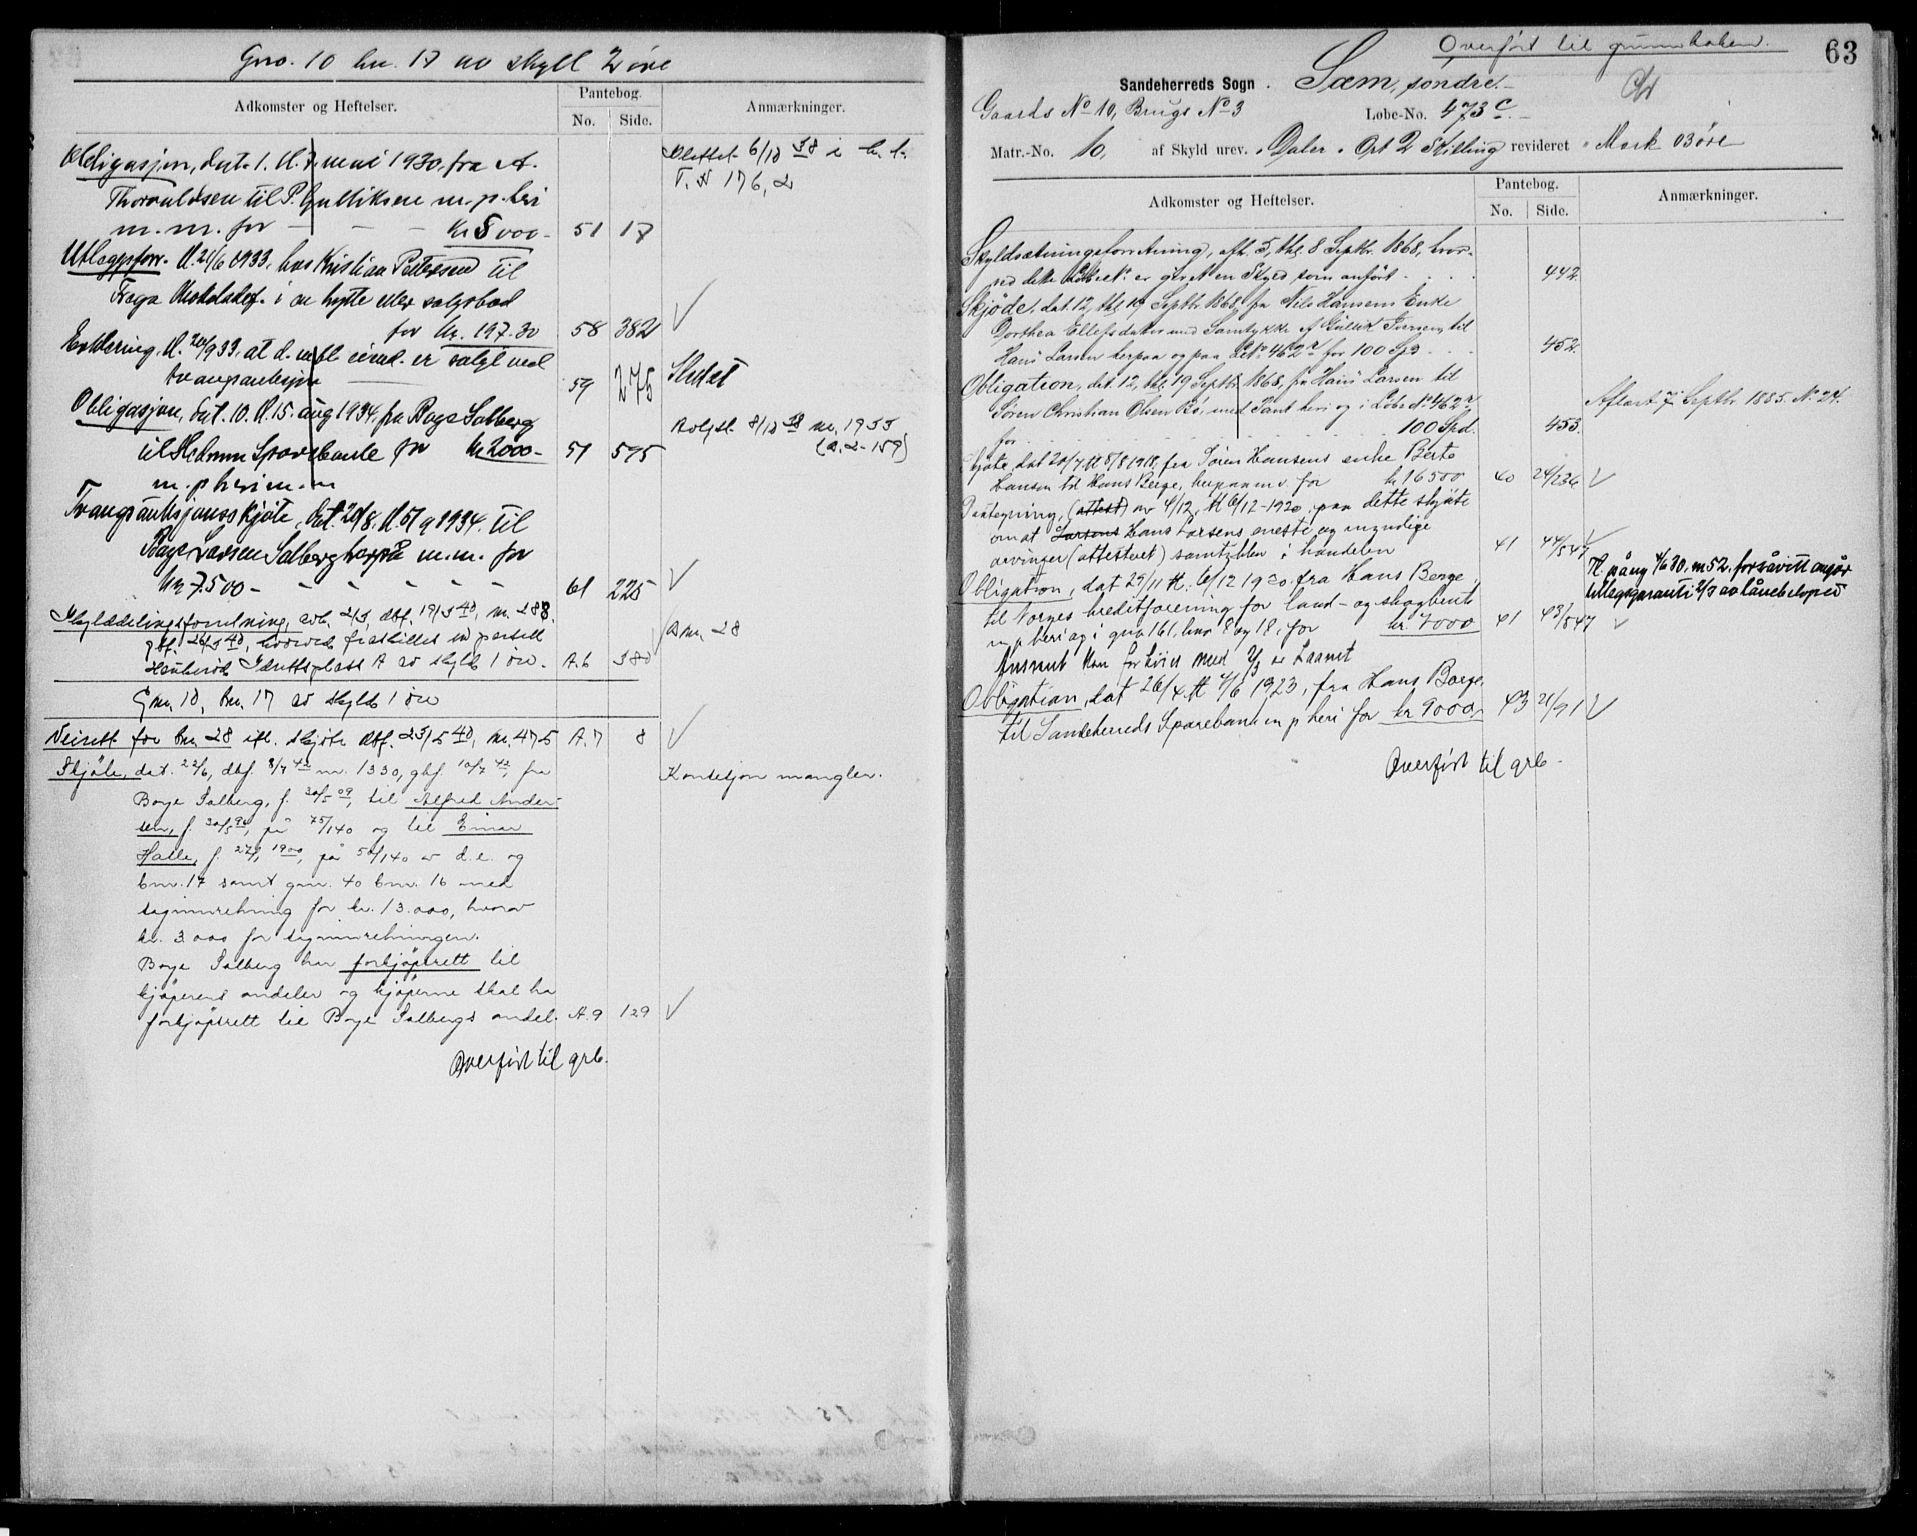 Gno. 10 bn. 17 av skyll 2 øre
Adkomster og Heftelser.
Pantebog.
No.
Side.
Anmærkninger.
Obligasjon, dat. 1. tl. 7. mai 1930, fra A.
Thorvaldsen til P. Gulliksen m. p. heri
m. m. for — — — kr 8000.-
51 17
Slettet 6/10 38 i h. t.
T. N 176, 2
Utleggsforr. tl. 21/6 1933, hos Kristian Pettersen til
Freya Chokoladef. i en hytte eller salgsbod
for kr. 197.30
58 382
√
Erklering, tl. 20/9 33, at d. nevnte eiend. er solgt ved
tvangsauksjon
59 275
Slettet
Obligasjon, dat. 10. tl. 15. aug 1934, fra Boye Solberg
til Hedrum Sparebank for kr 2000.-
m. p. heri m. m
51 595
Avlyst 8/10 38 nr. 1955
(A. 2-159)
Tvangsauksjonsskjøte, dat. 20/8. tl. 5/9 1934. til
Boye Larssen Solberg herpå m. m. for
kr 7.500 - - - - - -
61 225
√
Skylddelingsforretning, avh. 2/3, dbf. 19/3 40, nr. 288,
gbf. 26/3 40, hvorved fraskilles en parsell
Haukerød Idrettsplass A av skyld 1 øre.
A. 6 380
Bnr. 28
Gnr. 10, bnr. 17 av skyld 1 øre
Veirett for bnr. 28 ifl. skjøte dbf. 23/5 40, nr. 475
A. 7 8
√
Skjøte, dat. 22/6, dbf. 8/7 42 nr. 1330, gbf. 10/7 42, fra
Konsesjon mangler.
Boye Solberg, f. 30/5 09, til Alfred Ander-
sen, f. 30/5 96, på 75/140 og til Einar
Halle, f. 27/1 1900, på 50/140 av d. e. og
bnr. 17 samt gnr. 40 bnr. 16 med
tominnretning for kr. 13.000, hvorav
kr. 3.000 for tominnretningen.
Boye Solberg har forkjøpsrett til
kjøperens andeler og kjøperne skal ha
forkjøpsrett til Boye Solbergs andel.
A. 9 129
√
Overført til grb.
Overført til grunnboken.
63
Sandeherreds Sogn. Sæm, søndre.
Gaards No 10, Brugs No 3
Løbe-No. 473 c.
Matr.-No. 10, af Skyld urev. " Daler " Ort 2 Skilling revideret " Mark 03 øre
Adkomster og Heftelser.
Pantebog.
No.
Side.
Anmærkninger.
Skyldsætningsforretning, afh. 5, thl. 8 Septbr. 1868, hvor-
ved dette Løbe No. er givet en Skyld som anført
442.
Skjøde, dat. 12, thl. 19 Septbr 1868, fra Nils Hansens Enke
Dorthea Ellefsdatter med Samtykke af Gullik Iversen, til
Hans Larsen herpaa og paa LNo 462 a for 100 Spd
452.
Obligation, dat. 12, thl. 19 Septbr 1868, fra Hans Larsen til
Søren Christian Olsen Bø, med Pant heri og i Løbe No 462 a,
for 100 Spd.
453.
Aflæst 7 Septbr 1885. No. 24.
Skjøte, dat 20/7 tl 8/8 1918, fra Søren Hansens enke Berte
Hansen til Hans Berge, herpaa m. v. for kr 16500
40 24/236 √
Paategning, (attest) av 4/12, tl 6/12-1920, paa dette skjøte
om at Larsens Hans Larsens eneste og myndige
arvinger (attestert) samtykker i handelen
41 44/547 √
Obligation, dat 29/11 tl. 6/12 1920 fra Hans Berge,
til Norges kreditforening for land- og skogbruk
m p heri og i gno 161, bno 8 og 18, for kr. 7000
41 43/547 √
Tl. påteg 4/6 30. nr 52. forsåvitt angår
tilleggsgaranti 2/3 av lånebeløpet
Ansvaret kan forhøies med 2/3 av Laanet
Obligation, dat 26/4 tl 4/6 1923, fra Hans Berge,
til Sandeherreds Sparebank m p heri for kr 9000,-
43 21/91 √
Overført til grb.